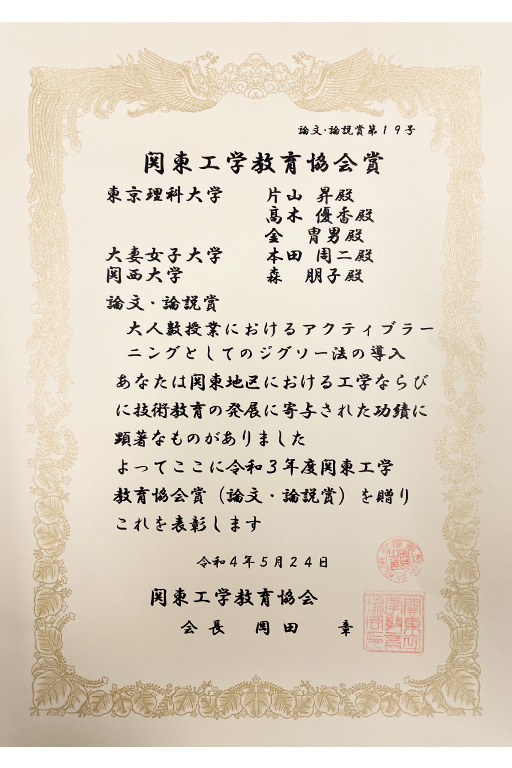 論文・論説賞第19号
関東工学教育協会賞
東京理科大学 片山 昇殿
髙木 優香殿
金 胄男殿
大妻女子大学 本田 周二殿
関西大学 森 朋子殿
論文・論説賞
大人数授業におけるアクティブラー
ニングとしてのジグソー法の導入
あなたは関東地区における工学ならび
に技術教育の発展に寄与された功績に
顕著なものがありました
よってここに令和3年度関東工学
教育協会賞（論文・論説賞）を贈り
これを表彰します
令和4年5月24日
関東工学教育協会
会長 岡田 章